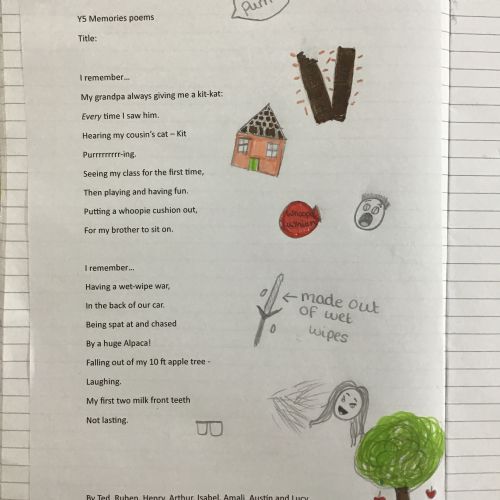 Purr
Y5 Memories poems
Title:
I remember...
My grandpa always giving me a kit-kat:
Every time I saw him.
Hearing my cousin's cat – Kit
Purrrrrrrrr-ing.
Seeing my class for the first time,
Then playing and having fun.
Putting a whoopie cushion out,
For my brother to sit on.
whoopie
cushion
I remember...
Having a wet-wipe war,
In the back of our car.
Being spat at and chased
By a huge Alpaca!
Falling out of my 10 ft apple tree -
Laughing.
My first two milk front teeth
Not lasting.
made out
of wet
wipes
By Ted, Ruben, Henry, Arthur, Isabel, Amali, Austin and Lucy